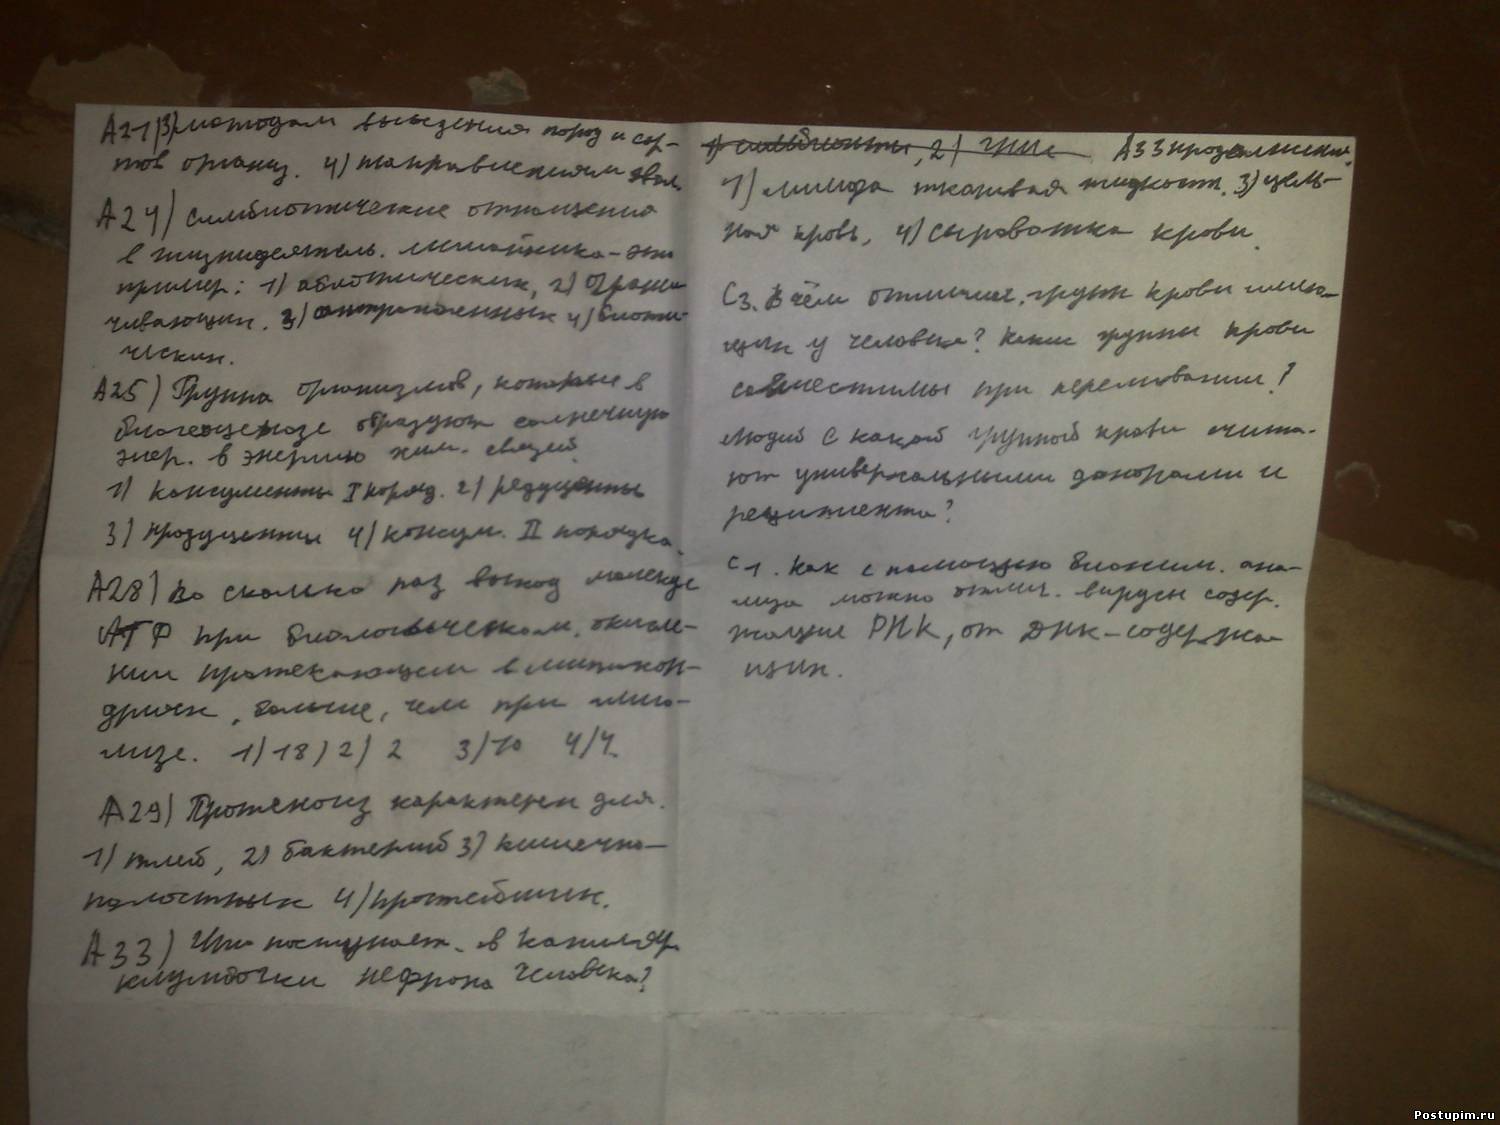 А21)3) методам выведения пород и сор-
тов организ. 4) направлениям эвол.
А24) симбиотические отношения
в жизнидеятель. лишайника - это
пример: 1) абиотических, 2) ограни
чивающих. 3) антропогенных 4) биоти-
ческих.
А25) Группа организмов, которые в
биогеоценозе образуют солнечную
энер. в энергию хим. связей.
1) консументы I поряд. 2) редуценты
3) продуценты 4) консум. II порядка.
А28) Во сколько раз выход молекул
АТФ при биологическом. окисле-
нии протекающем в митохон-
дриях, больше, чем при глико-
лизе. 1) 18) 2) 2 3) 10 4) 4.
А29) характерен для.
1) тлей, 2) бактерий 3) кишечно-
полостных 4) простейших.
А33) Что поступает. в капиляр.
клубочки нефрона человека?
А33 продолжение.
1) лимфа тканевая жидкост. 3) цель-
ная кровь, 4) сыроватка крови.
С3. В чём отличие. групп крови имею-
щих у человека? Какие группы крови
совместимы при переливании?
Людей с какой группой крови счита-
ют универсальными донорами и
реципиента?
С1. Как с помощью биохим. ана-
лиза можно отлич. вирусы содер.
жащие РНК, от ДНК-содержа
щих.
Postupim.ru